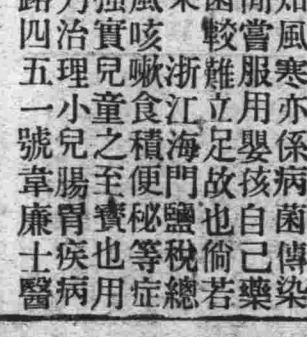 風寒亦係病菌傳染
嘗服用嬰孩自己藥
菌較難立足故也倘若
浙江海門鹽稅總
風咳嗽食積便秘等症
强實兒童之至寶也用
力治理小兒腸胃疾病
路四五一號韋廉士醫